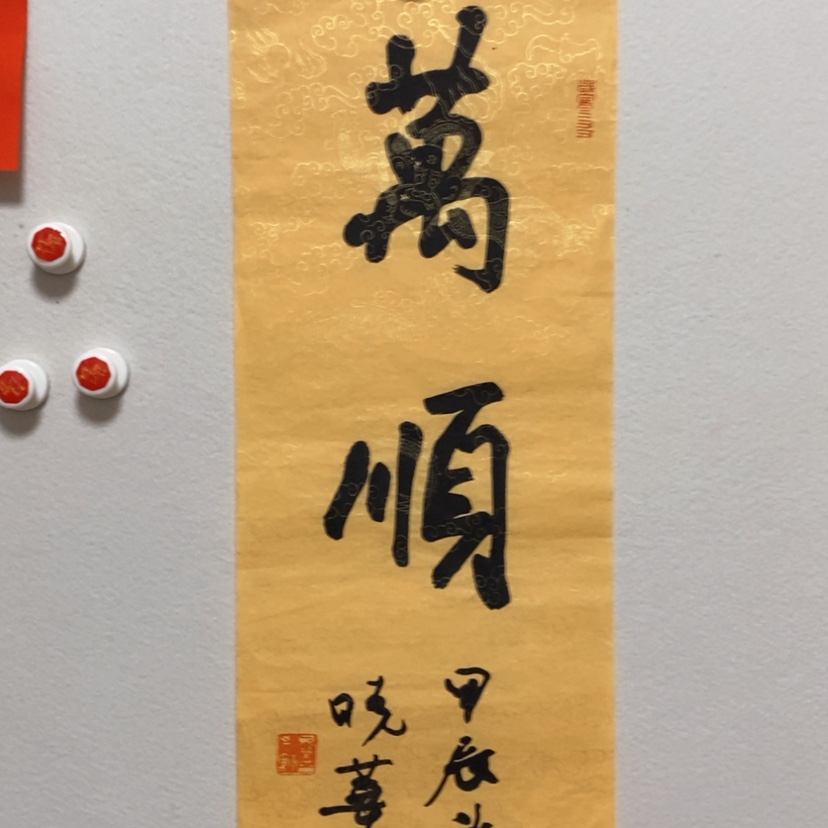 萬順
甲辰
晓華